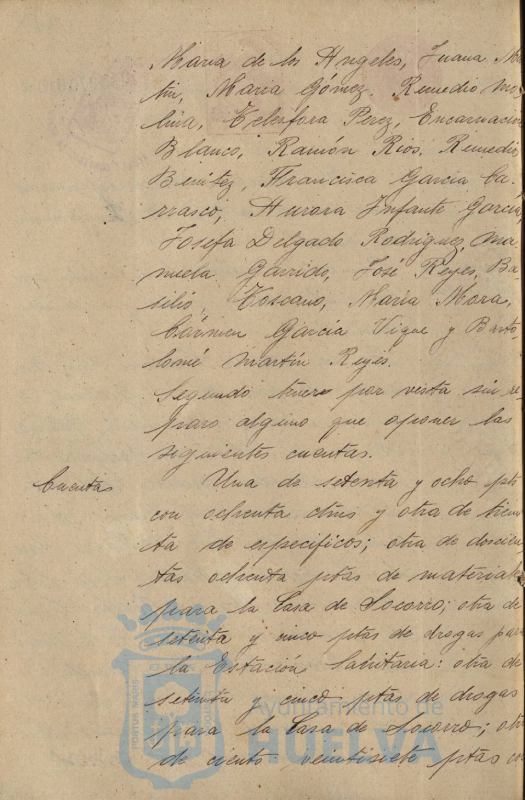 Maria de los Angeles, Juana Mar
tin, Maria Gómez, Remedio Mo
lina, Telesfora Perez, Encarnacion
Blanco, Ramón Rios, Remedio
Benitez, Francisca Garcia Ca-
rrasco, Aurora Infante Garcia,
Josefa Delgado Rodriguez, Ma
nuela Garrido, José Reyes, Ba
silio Toscano, Maria Mora,
Cármen Garcia Vique y Barto
lomé Martin Reyes.
Segundo tener por vista sin re
paro alguno que oponer las
siguientes cuentas.
Cuentas
Una de setenta y ocho pts
con ochenta ctms y otra de trein
ta de especificos; otra de doscien
tas ochenta ptas de material
para la Casa de Socorro; otra de
setenta y cinco ptas de drogas para
la Estación Sanitaria: otra de
setenta y cinco ptas de drogas
para la Casa de Socorro; otra
de ciento veintisiete ptas co
Ayuntamiento de
HUELVA